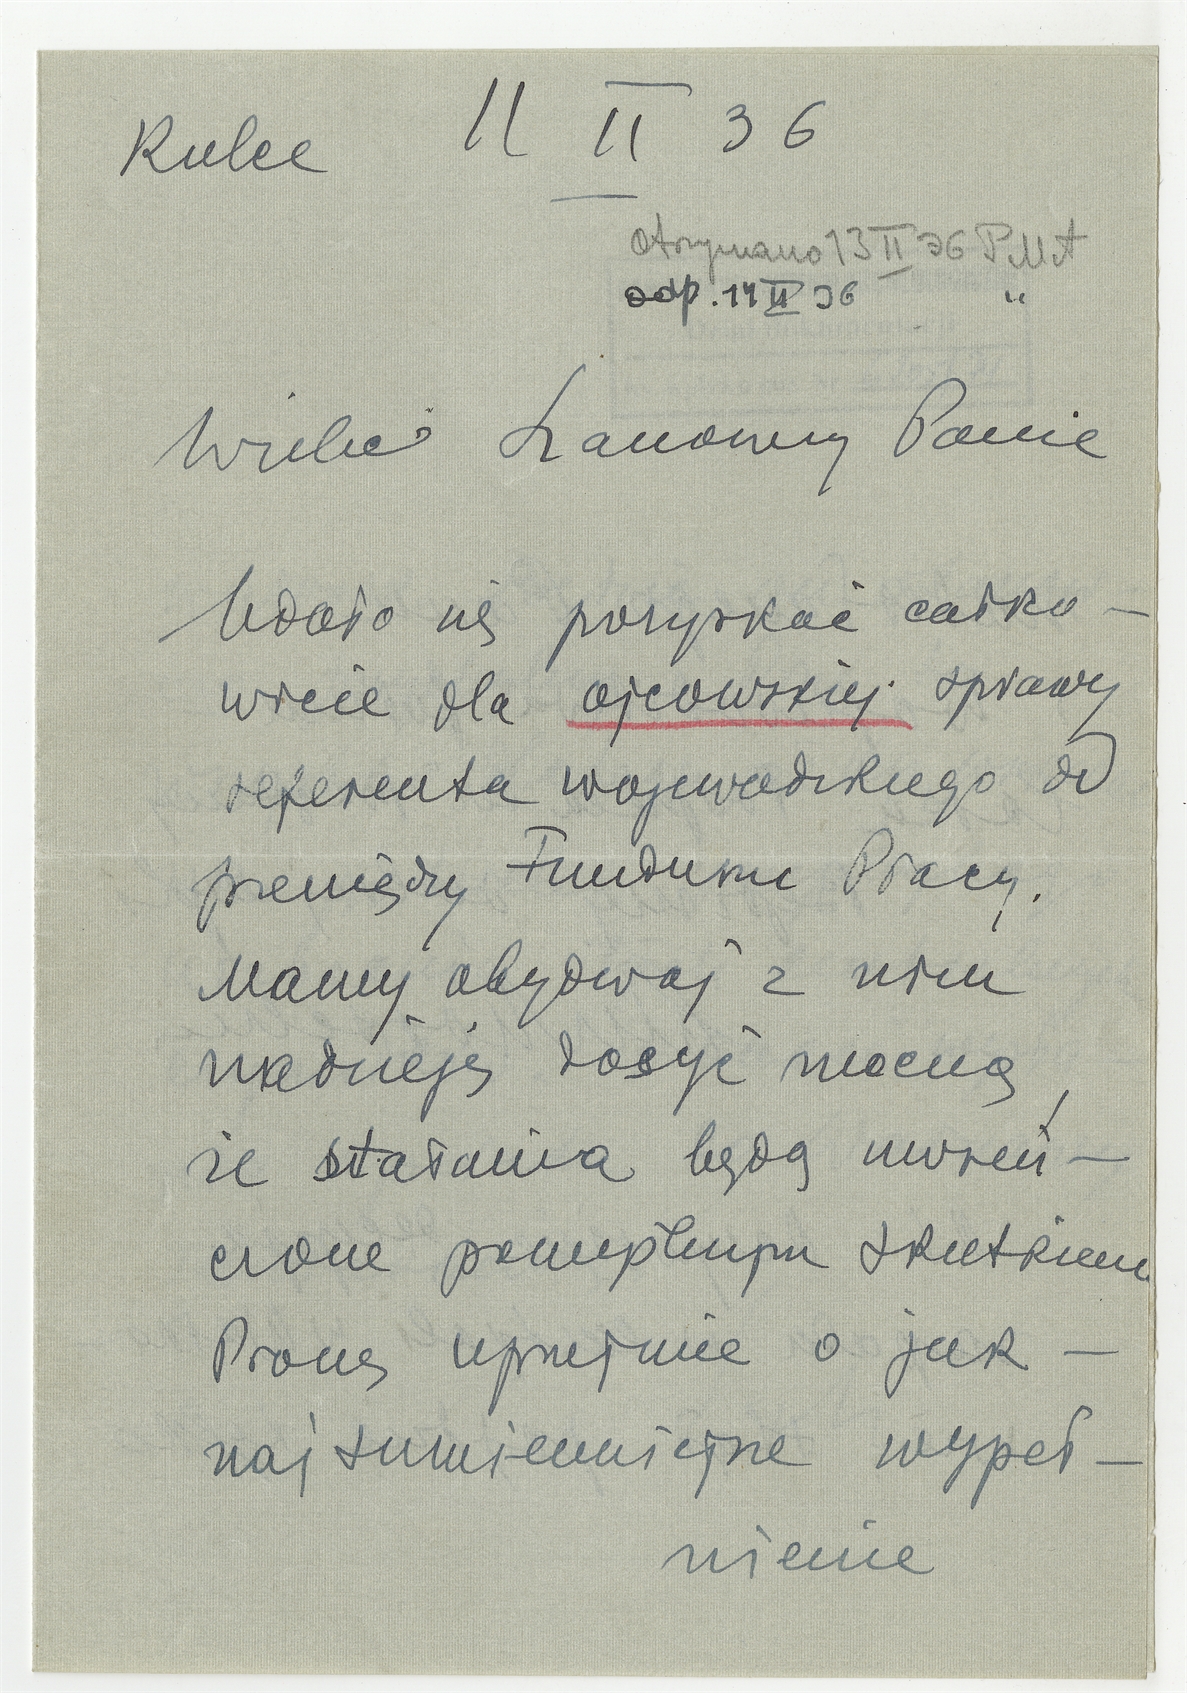 Kielce 11 II 36
otrzymano 13 II 36 PMA
odp. 14 II 36 "
Wielce Szanowny Panie
Udało się pozyskać całko-
wicie dla ojcowskiej sprawy
referenta wojewódzkiego od
pieniędzy Funduszu Pracy.
Mamy obydwaj z nim
nadzieję dosyć mocną,
że starania będą uwień-
czone pomyślnym skutkiem
Proszę uprzejmie o jak-
najsumienniejsze wypeł-
nienie